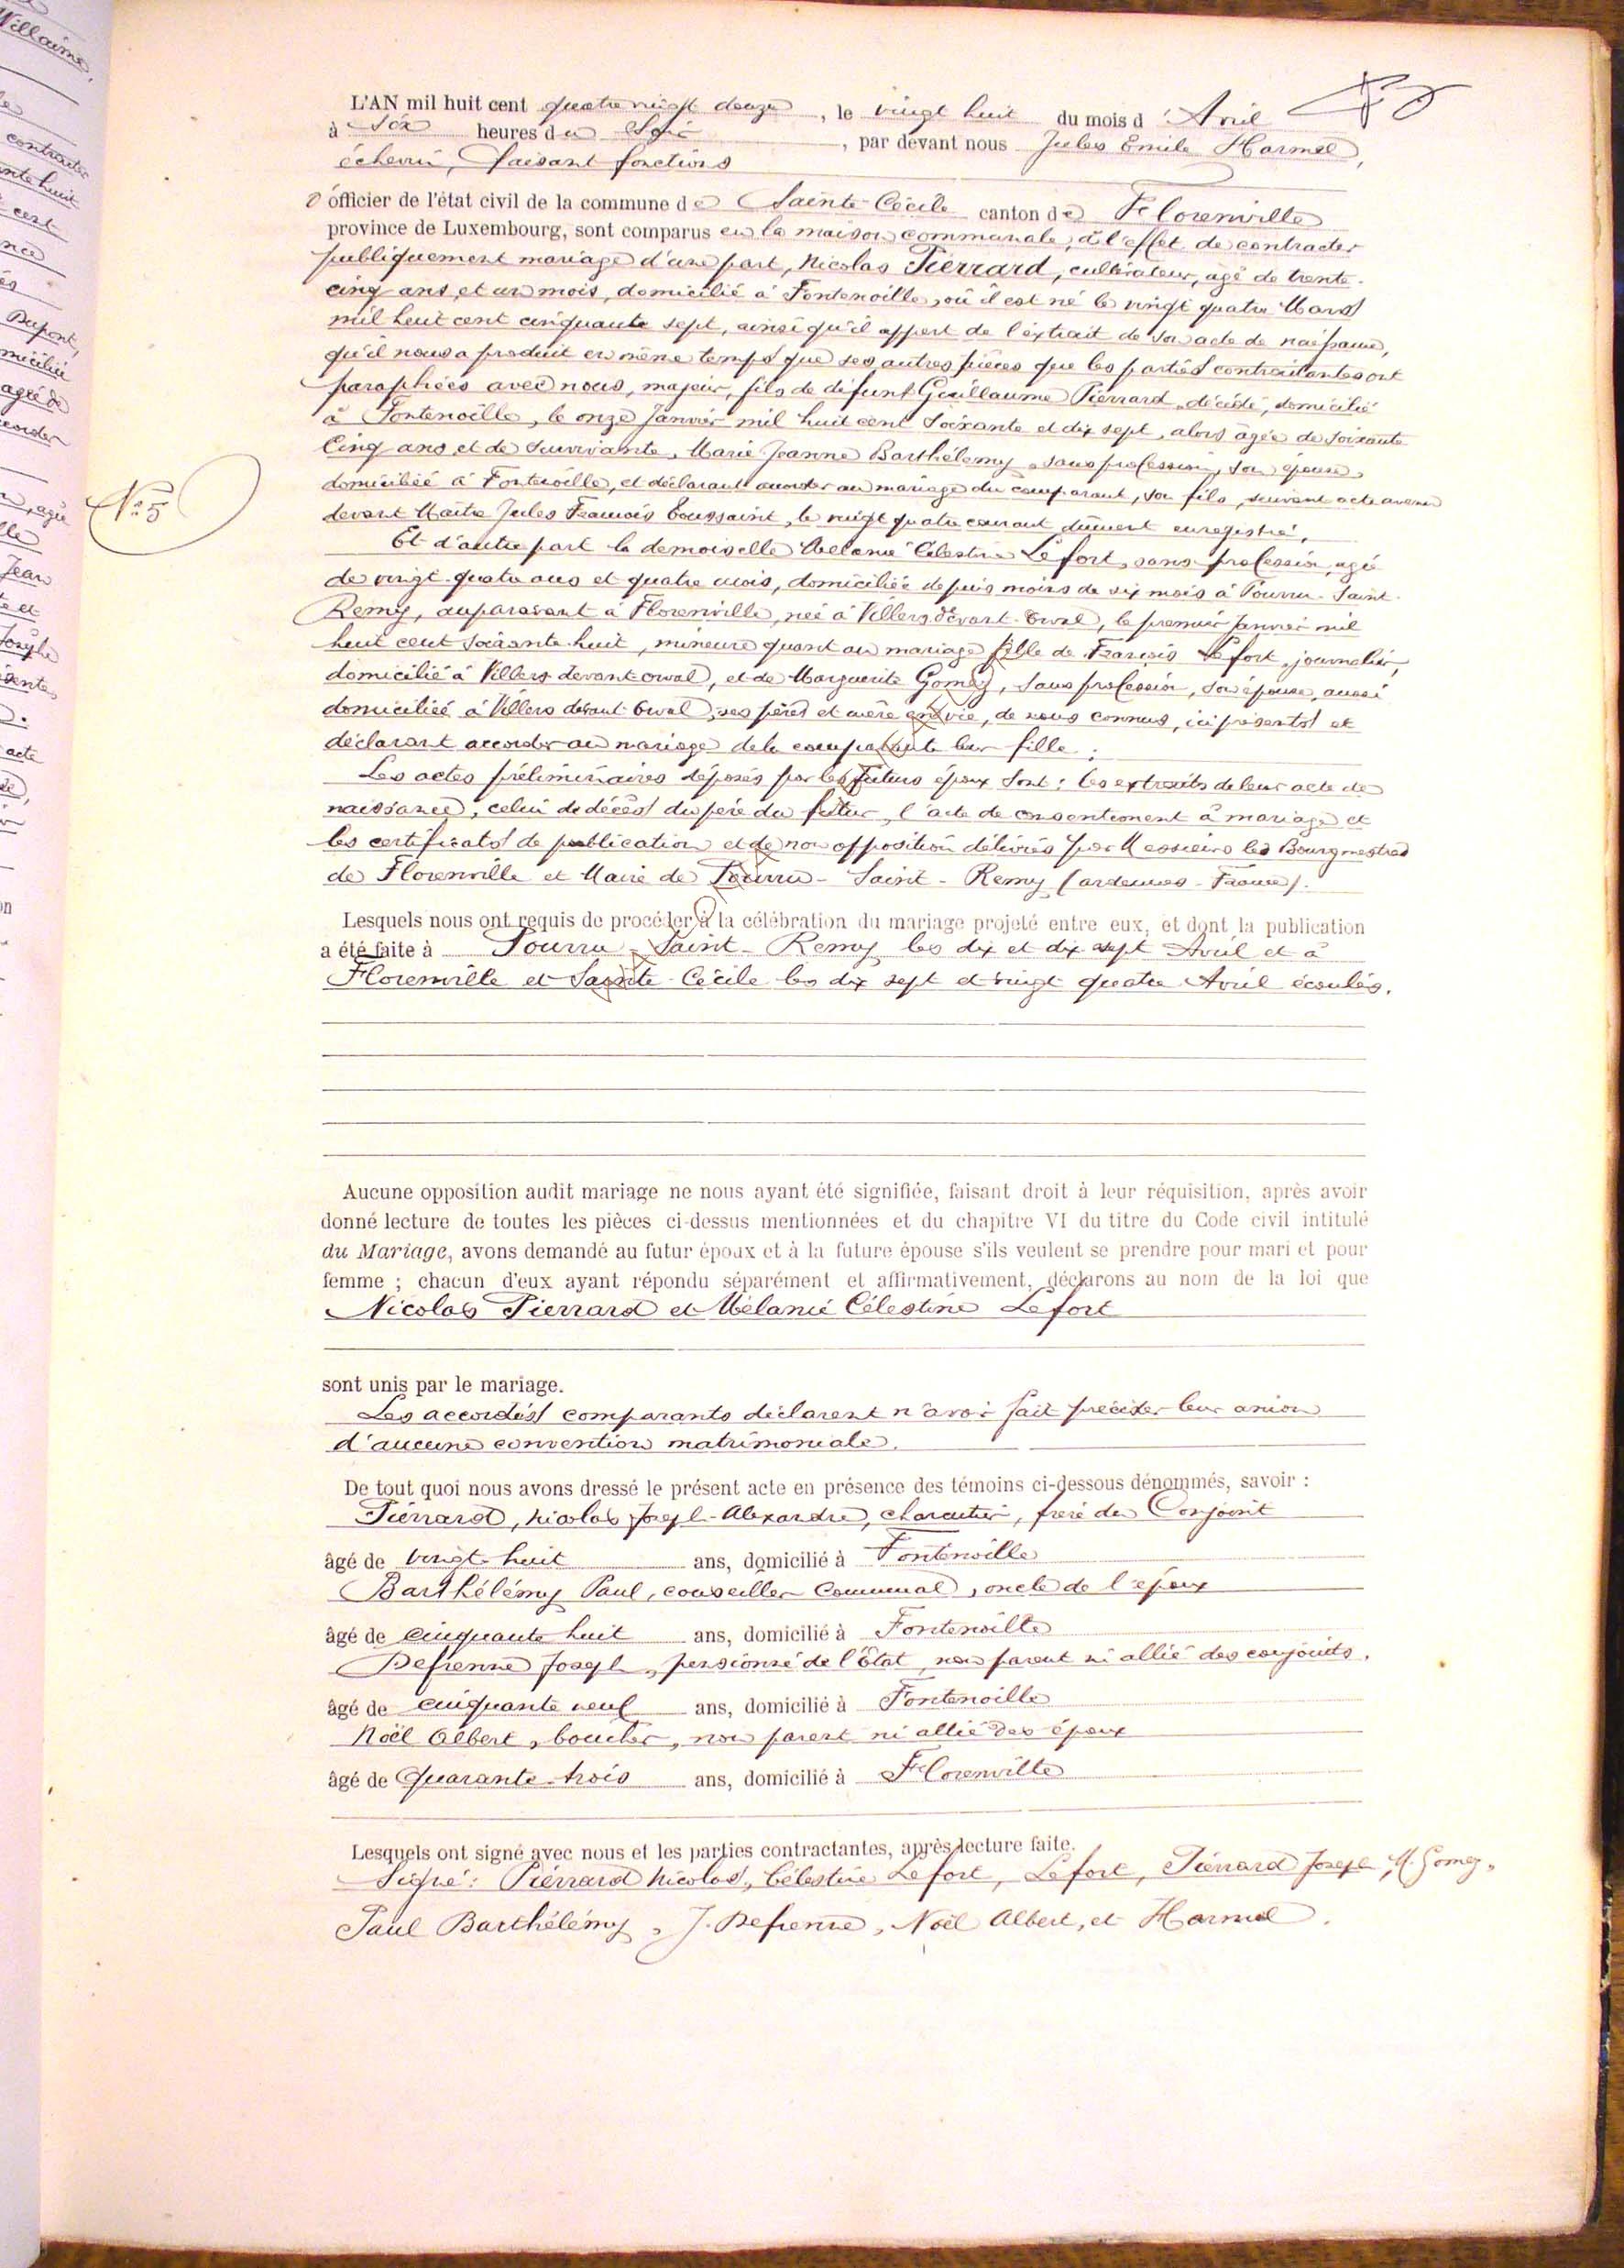 L'AN mil huit cent quatre vingt douze, le vingt huit du mois d'Avril
à six heures du soir, par devant nous Jules Emile Harmel,
échevin, faisant fonctions
d'officier de l'état civil de la commune de Sainte-Cécile canton de Florenville
province de Luxembourg, sont comparus en la maison communale, à l'effet de contracter
publiquement mariage d'une part, Nicolas Pierrard, cultivateur, âgé de trente-
cinq ans et un mois, domicilié à Fontenoille, où il est né le vingt quatre Mars
mil huit cent cinquante sept, ainsi qu'il appert de l'extrait de son acte de naissance,
qu'il nous a produit en même temps que ses autres pièces que les parties contractantes ont
paraphées avec nous, majeur, fils de défunt Guillaume Pierrard, décédé, domicilié
à Fontenoille, le onze Janvier mil huit cent soixante et dix sept, alors âgée de soixante
Cinq ans et de survivante, Marie Jeanne Barthélemy, sans profession, son épouse,
domiciliée à Fontenoille, et déclarant accorder au mariage du comparant, son fils, suivant acte avenu
devant Maître Jules François Toussaint, le vingt quatre courant dûment enregistré,
N° 5
Et d'autre part la demoiselle Mélanie Célestine Lefort, sans profession, agée
de vingt-quatre ans et quatre mois, domiciliée depuis moins de six mois à Pourru-Saint-
Remy, auparavant à Florenville, née à Villers devant-Orval, le premier Janvier mil
huit cent soixante-huit, mineure quant au mariage fille de François Lefort, journalier,
domicilié à Villers-devant-orval, et de Marguerite Gomez, sans profession, son épouse, aussi
domiciliée à Villers devant-Orval, ses père et mère en vie, de nous connus, ici présents et
déclarant accorder au mariage de la comparante leur fille;
Les actes préliminaires déposés par les futurs époux sont: les extraits de leur acte de
naissance, celui de décès du père du futur, l'acte de consentement à mariage et
les certificats de publication et de non opposition délivrés par Messieurs les Bourgmestres
de Florenville et Maire de Pourru-Saint-Remy (ardennes-France).
Lesquels nous ont requis de procéder à la célébration du mariage projeté entre eux, et dont la publication
a été faite à Pourru-Saint-Remy les dix et dix sept Avril et à
Florenville et Sainte-Cécile les dix sept et vingt quatre Avril écoulés.
Aucune opposition audit mariage ne nous ayant été signifiée, faisant droit à leur réquisition, après avoir
donné lecture de toutes les pièces ci-dessus mentionnées et du chapitre VI du titre du Code civil intitulé
du Mariage, avons demandé au futur époux et à la future épouse s'ils veulent se prendre pour mari et pour
femme ; chacun d'eux ayant répondu séparément et affirmativement, déclarons au nom de la loi que
Nicolas Pierrard et Mélanie Célestine Lefort
sont unis par le mariage.
Les accordés comparants déclarent n'avoir fait précéder leur union
d'aucune convention matrimoniale.
De tout quoi nous avons dressé le présent acte en présence des témoins ci-dessous dénommés, savoir :
Pierrard, nicolas Joseph-Alexandre, charcutier, frère du Conjoint
âgé de vingt-huit ans, domicilié à Fontenoille
Barthélémy Paul, conseiller Communal, oncle de l'époux
âgé de cinquante huit ans, domicilié à Fontenoille
Defrenne Joseph, pensionné de l'État, non parent ni allié des conjoints.
âgé de cinquante neuf ans, domicilié à Fontenoille
Noël Albert, boucher, non parent ni allié des époux
âgé de quarante-trois ans, domicilié à Florenville
Lesquels ont signé avec nous et les parties contractantes, après lecture faite.
Signé: Pierrard Nicolas, Célestine Lefort, Lefort, Pierrard Joseph, M. Gomez,
Paul Barthélémy, J. Defrenne, Noël Albert, et Harmel.